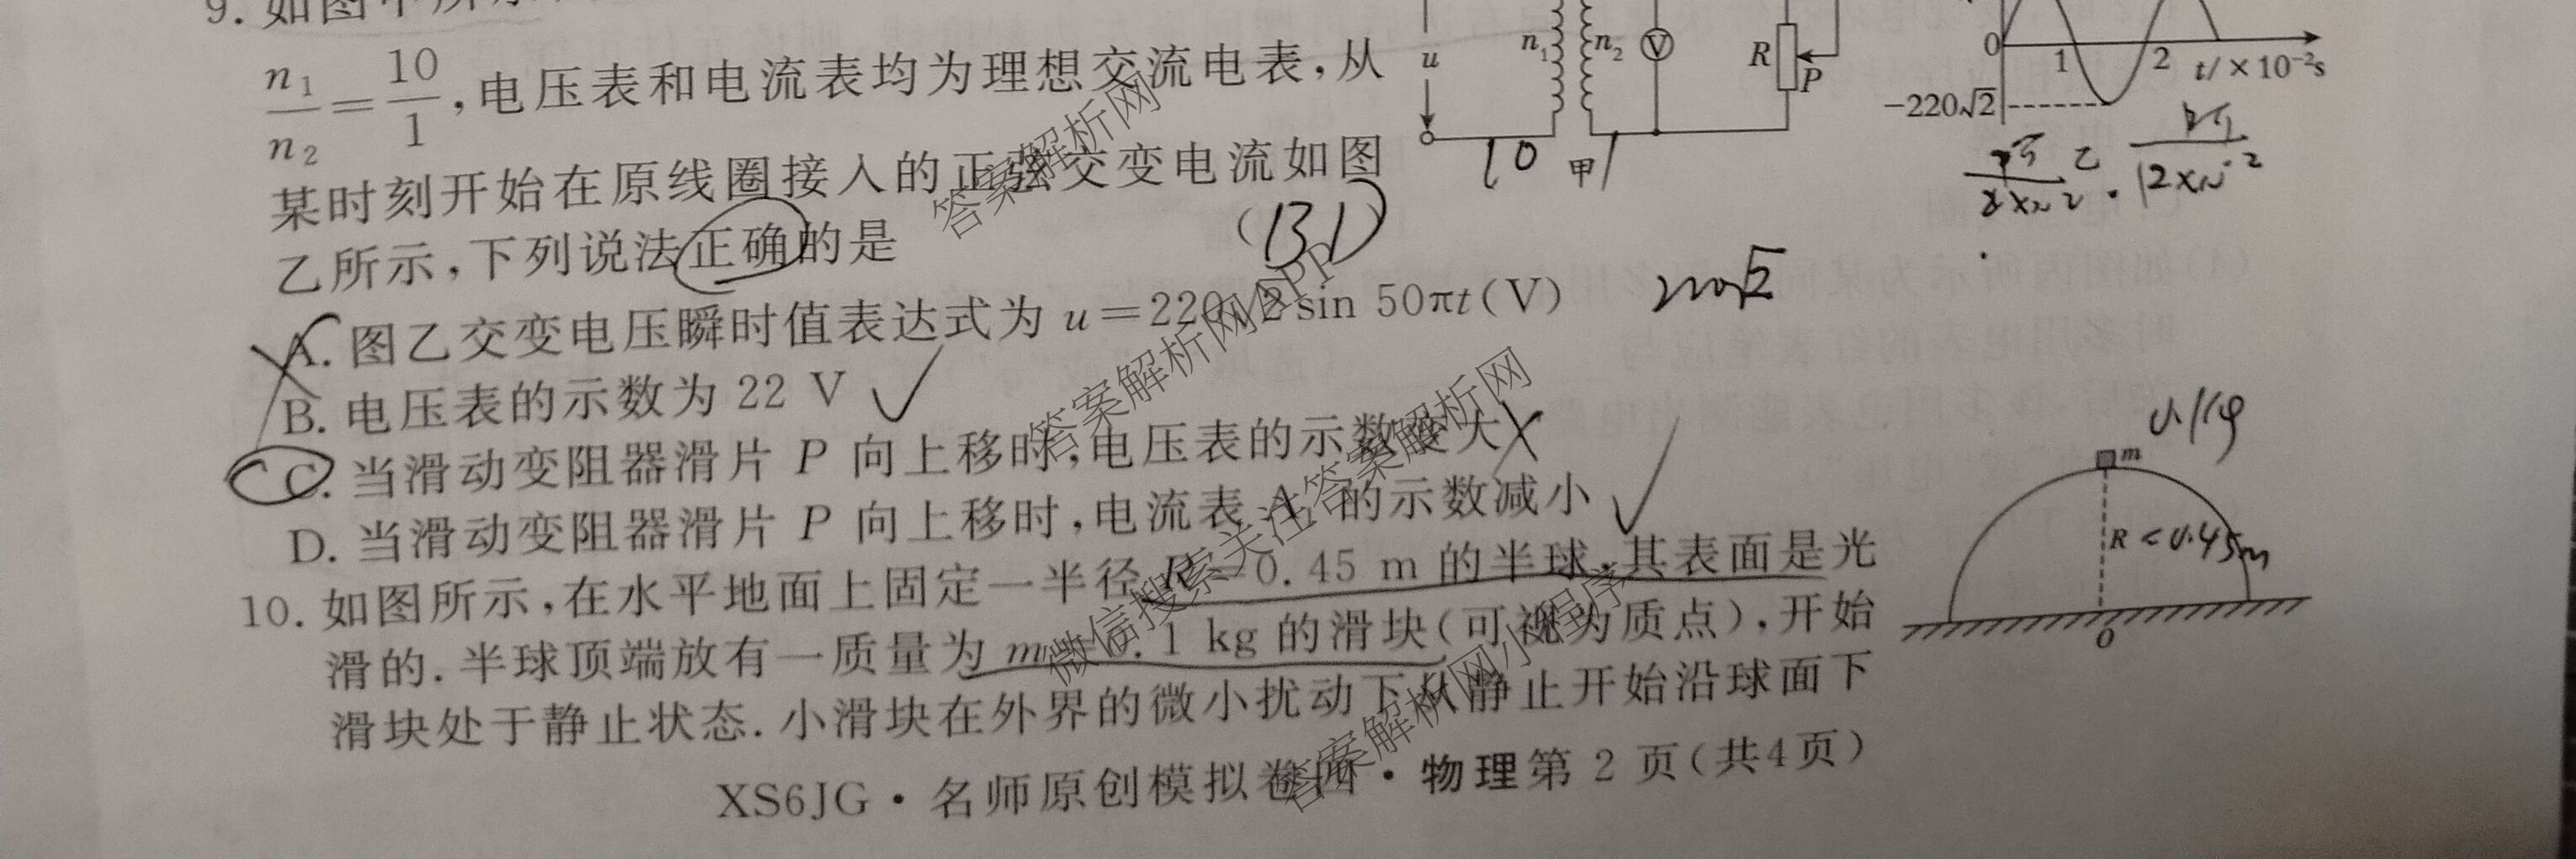 9. 如图甲所示
n₁/n₂=10/1,电压表和电流表均为理想交流电表,从
某时刻开始在原线圈接入的正弦交变电流如图
乙所示,下列说法正确的是
(BD)
A. 图乙交变电压瞬时值表达式为 u=220√2sin 50πt(V)
B. 电压表的示数为 22 V
C. 当滑动变阻器滑片 P 向上移时,电压表的示数变大
D. 当滑动变阻器滑片 P 向上移时,电流表 A 的示数减小
u
n₁
n₂
V
R
P
10
1
甲
0
1
2
t/×10⁻²s
-220√2
乙
220√2
10. 如图所示,在水平地面上固定一半径 R=0.45 m 的半球,其表面是光
滑的. 半球顶端放有一质量为 m=0.1 kg 的滑块(可视为质点),开始
滑块处于静止状态. 小滑块在外界的微小扰动下从静止开始沿球面下
m
0.1kg
R
=0.45m
O
XS6JG·名师原创模拟卷四·物理第 2 页(共4页)
答案解析网
答案解析网APP
微信搜索关注答案解析网
答案解析网小程序